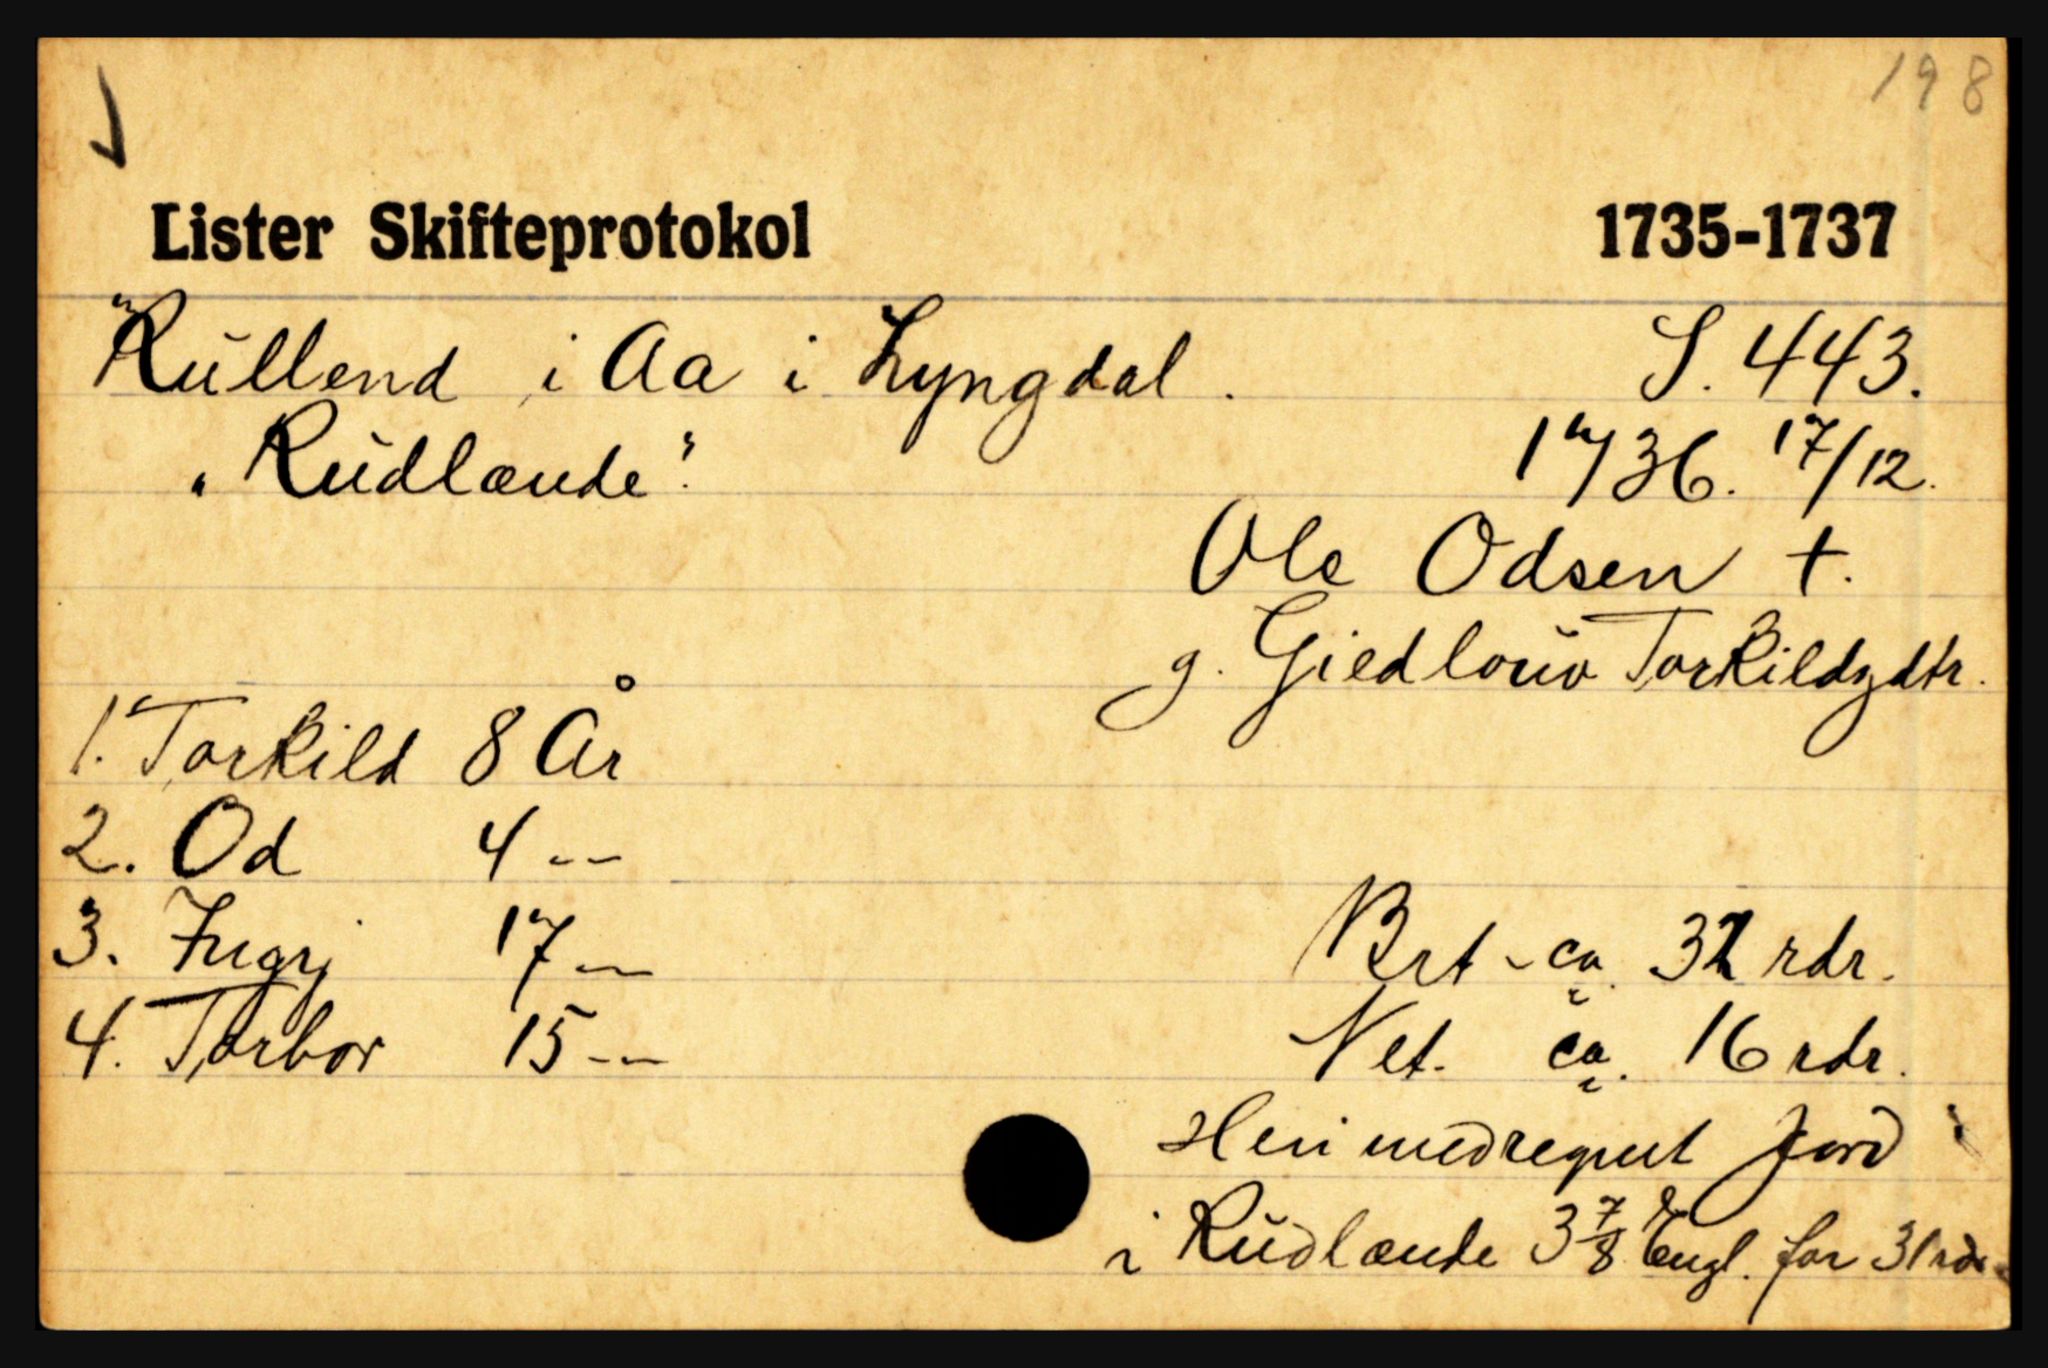 198
Lister Skifteprotokol 1735-1737
"Rúllend i Aa i Lyngdal. S. 443.
"Rúdlænde". 1736. 17/12.
Ole Odsen †.
g. Giedloúv Torkildsdtr.
1. Torkild 8 År
2. Od 4 --
3. Ingrj 17 --
4. Torbor 15 --
Brt - ca. 32 rdr.
Net. ca. 16 rdr.
Heri medregnet Jord
i Rúdlænde 3 7/8 Engl. for 31 rdr